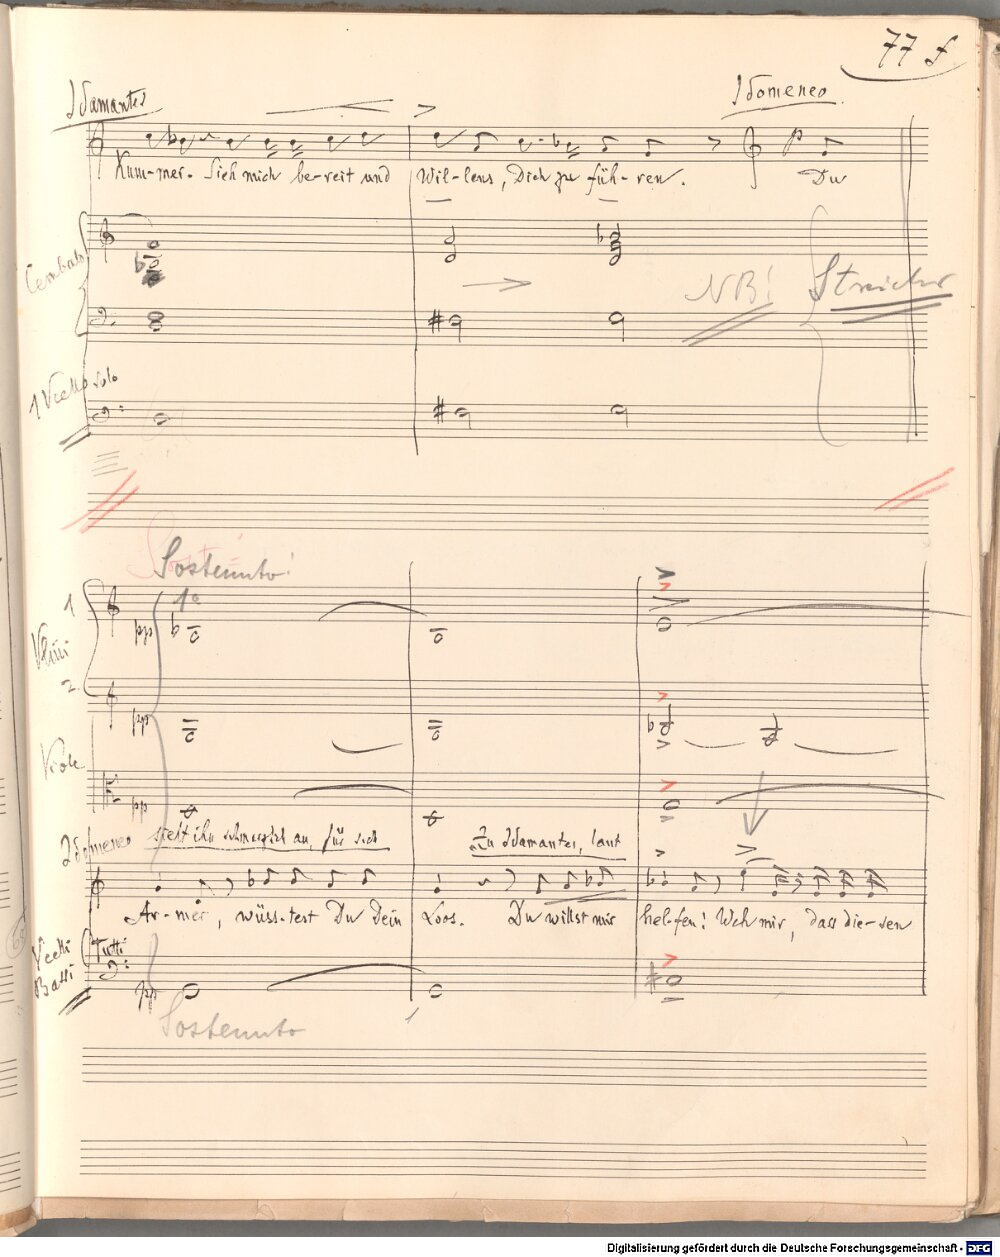 77 f
Idamantes
Idomeneo
Kum-mer. Sieh mich be-reit und Wil-lens, Dich zu füh-ren. Du
Cembalo
NB! Streicher
1 Vcello solo
Sostenuto!
1
1º
Vlini
pp
2.
pp
Viole
pp
Idomeneo sieht ihn schmerzlich an, für sich
zu Idamantes, laut
Ar-mer, wüss-test Du Dein Loos. Du willst mir hel-fen! Weh mir, dass die-sen
Vcelli Tutti
Bassi
pp
Sostenuto
Digitalisierung gefördert durch die Deutsche Forschungsgemeinschaft - DFG